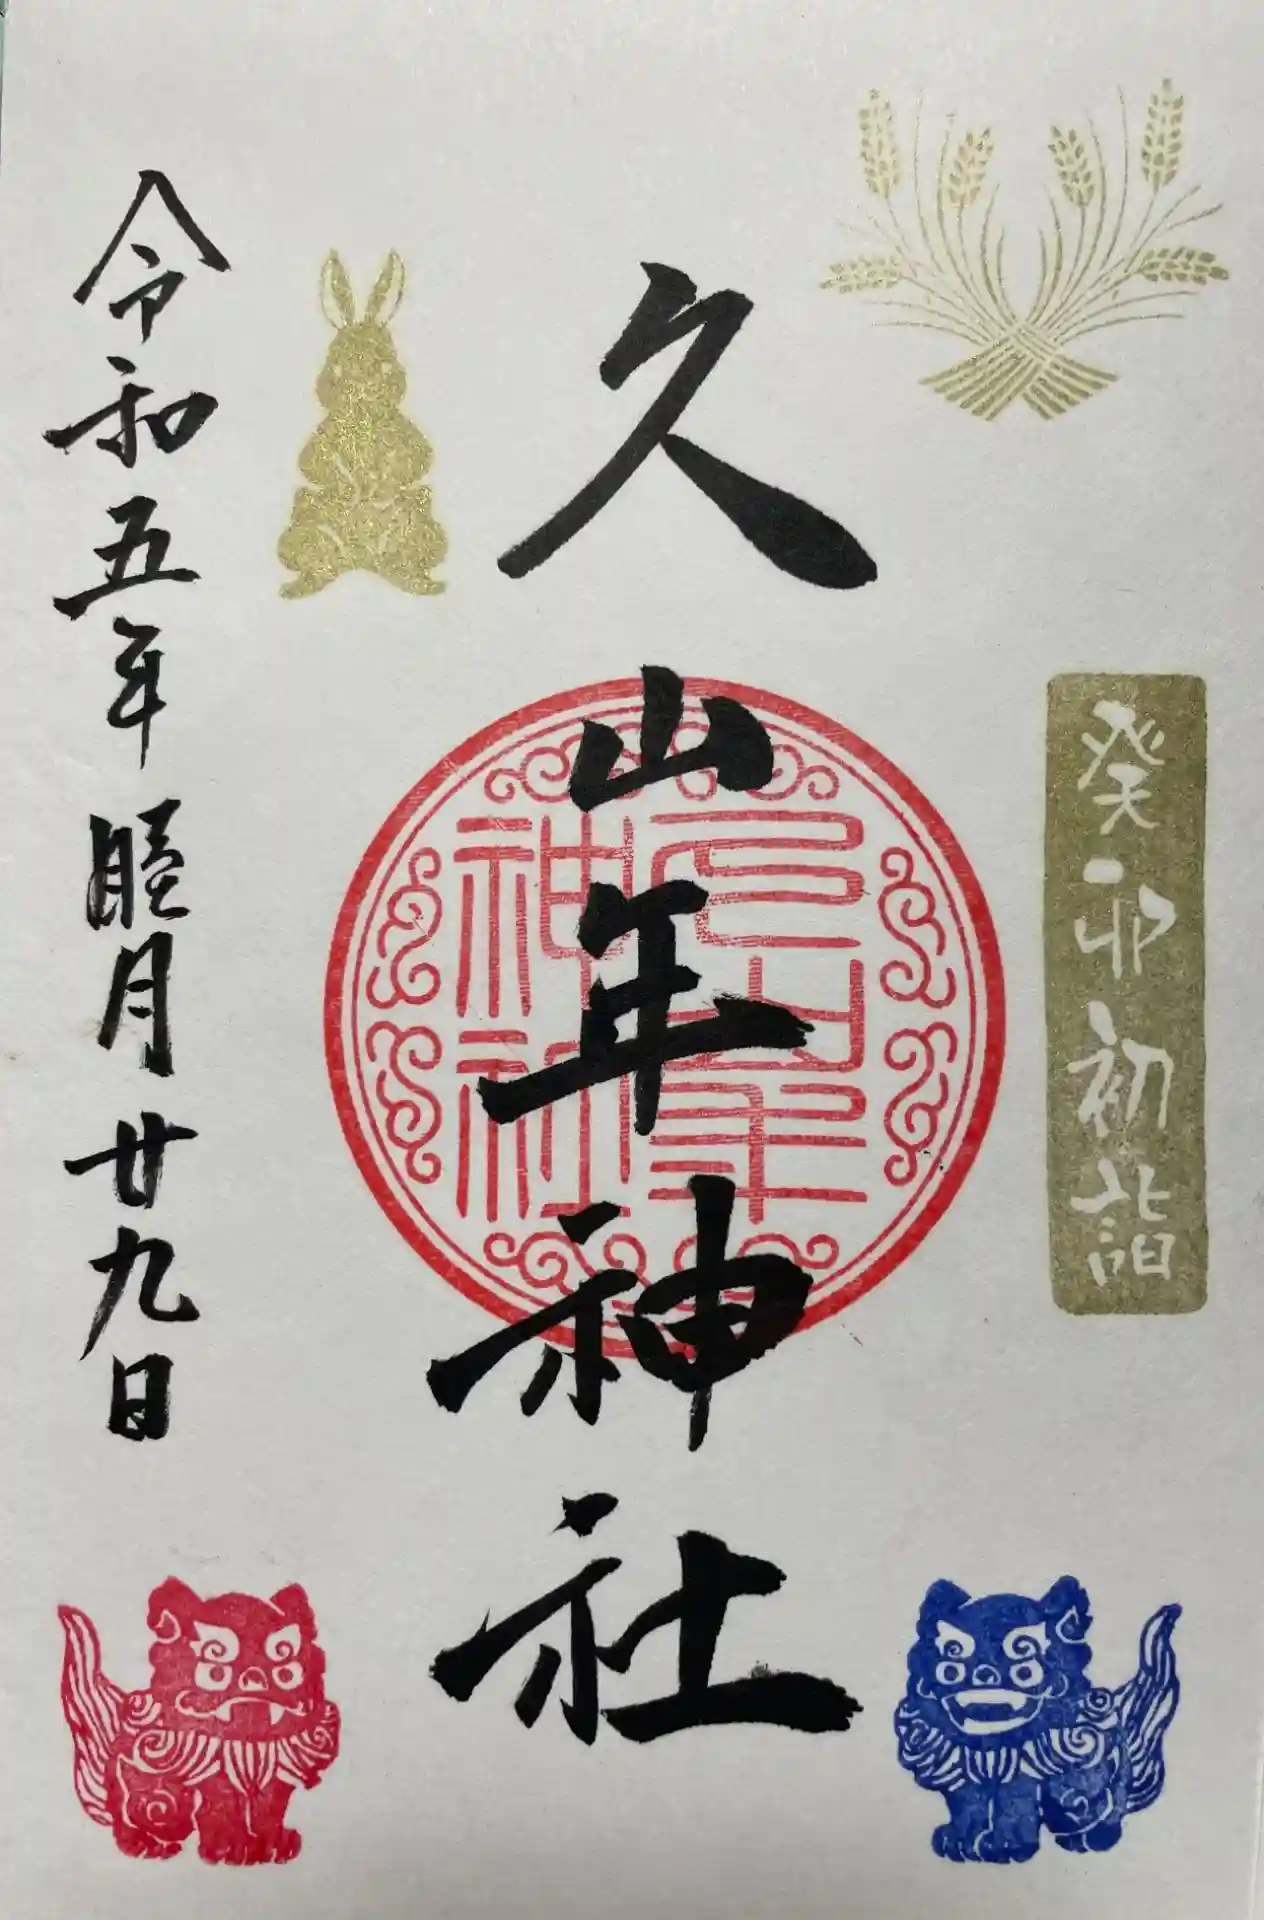 癸卯初詣
久山年神社
久山年
神社
令和五年 睦月 廿九日